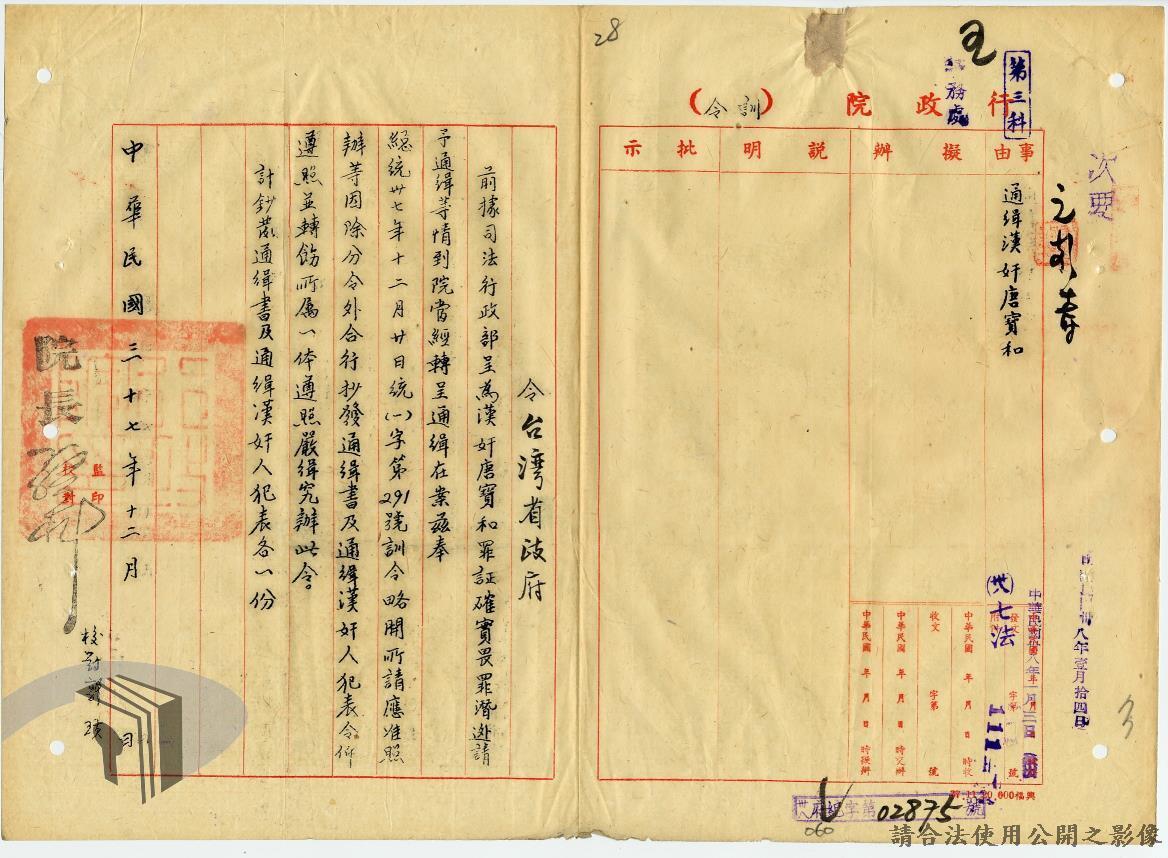 28
第三科
行政院（訓令）
事由
擬辦
說明
批示
次要
通緝漢奸唐寶和
令台灣省政府
前據司法行政部呈為漢奸唐寶和罪証確實畏罪潛逃請
予通緝等情到院當經轉呈通緝在案茲奉
總統卅七年十二月廿日統(一)字第291號訓令略開所請應准照
辦等因除分令外合行抄發通緝書及通緝漢奸人犯表令仰
遵照並轉飭所属一体遵照嚴緝究辦此令。
計鈔發通緝書及通緝漢奸人犯表各一份
院長
監印
校對
中華民國三十七年十二月　日
校對
卅八年壹月拾四日
發文 字第 號
卅七法
中華民國 年 月 日 時收
收文 字第 號
中華民國 年 月 日 時交辦
中華民國 年 月 日 時擬辦
府紀字第02875號
060
請合法使用公開之影像